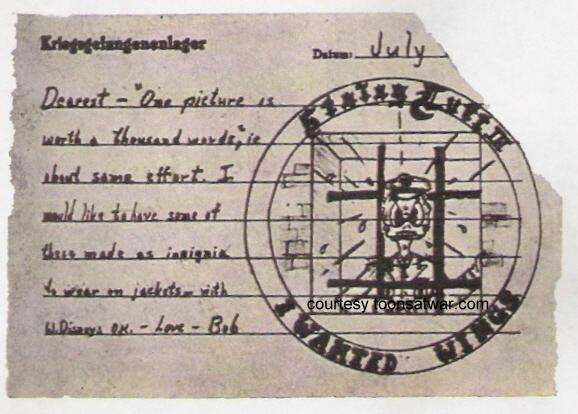 Kriegsgefangenenlager
Datum: July
Dearest - "One picture is
worth a thousand words," ie
about same effort. I
would like to have some of
these made as insignia
to wear on jackets - with
W. Disneys O.K. - Love - Bob
Stalag Luft III
I WANTED WINGS
courtesy toonsatwar.com